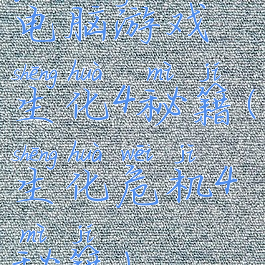 电脑游戏
shēng huà mì jí
生化4秘籍(
shēng huà wēi jī
生化危机4
mì jí
秘籍)